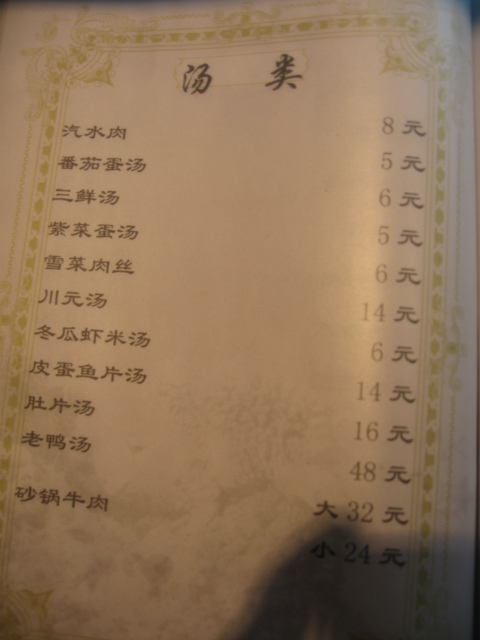 汤 类
汽水肉 8 元
番茄蛋汤 5 元
三鲜汤 6 元
紫菜蛋汤 5 元
雪菜肉丝 6 元
川元汤 14 元
冬瓜虾米汤 6 元
皮蛋鱼片汤 14 元
肚片汤 16 元
老鸭汤 48 元
砂锅牛肉 大 32 元
小 24 元